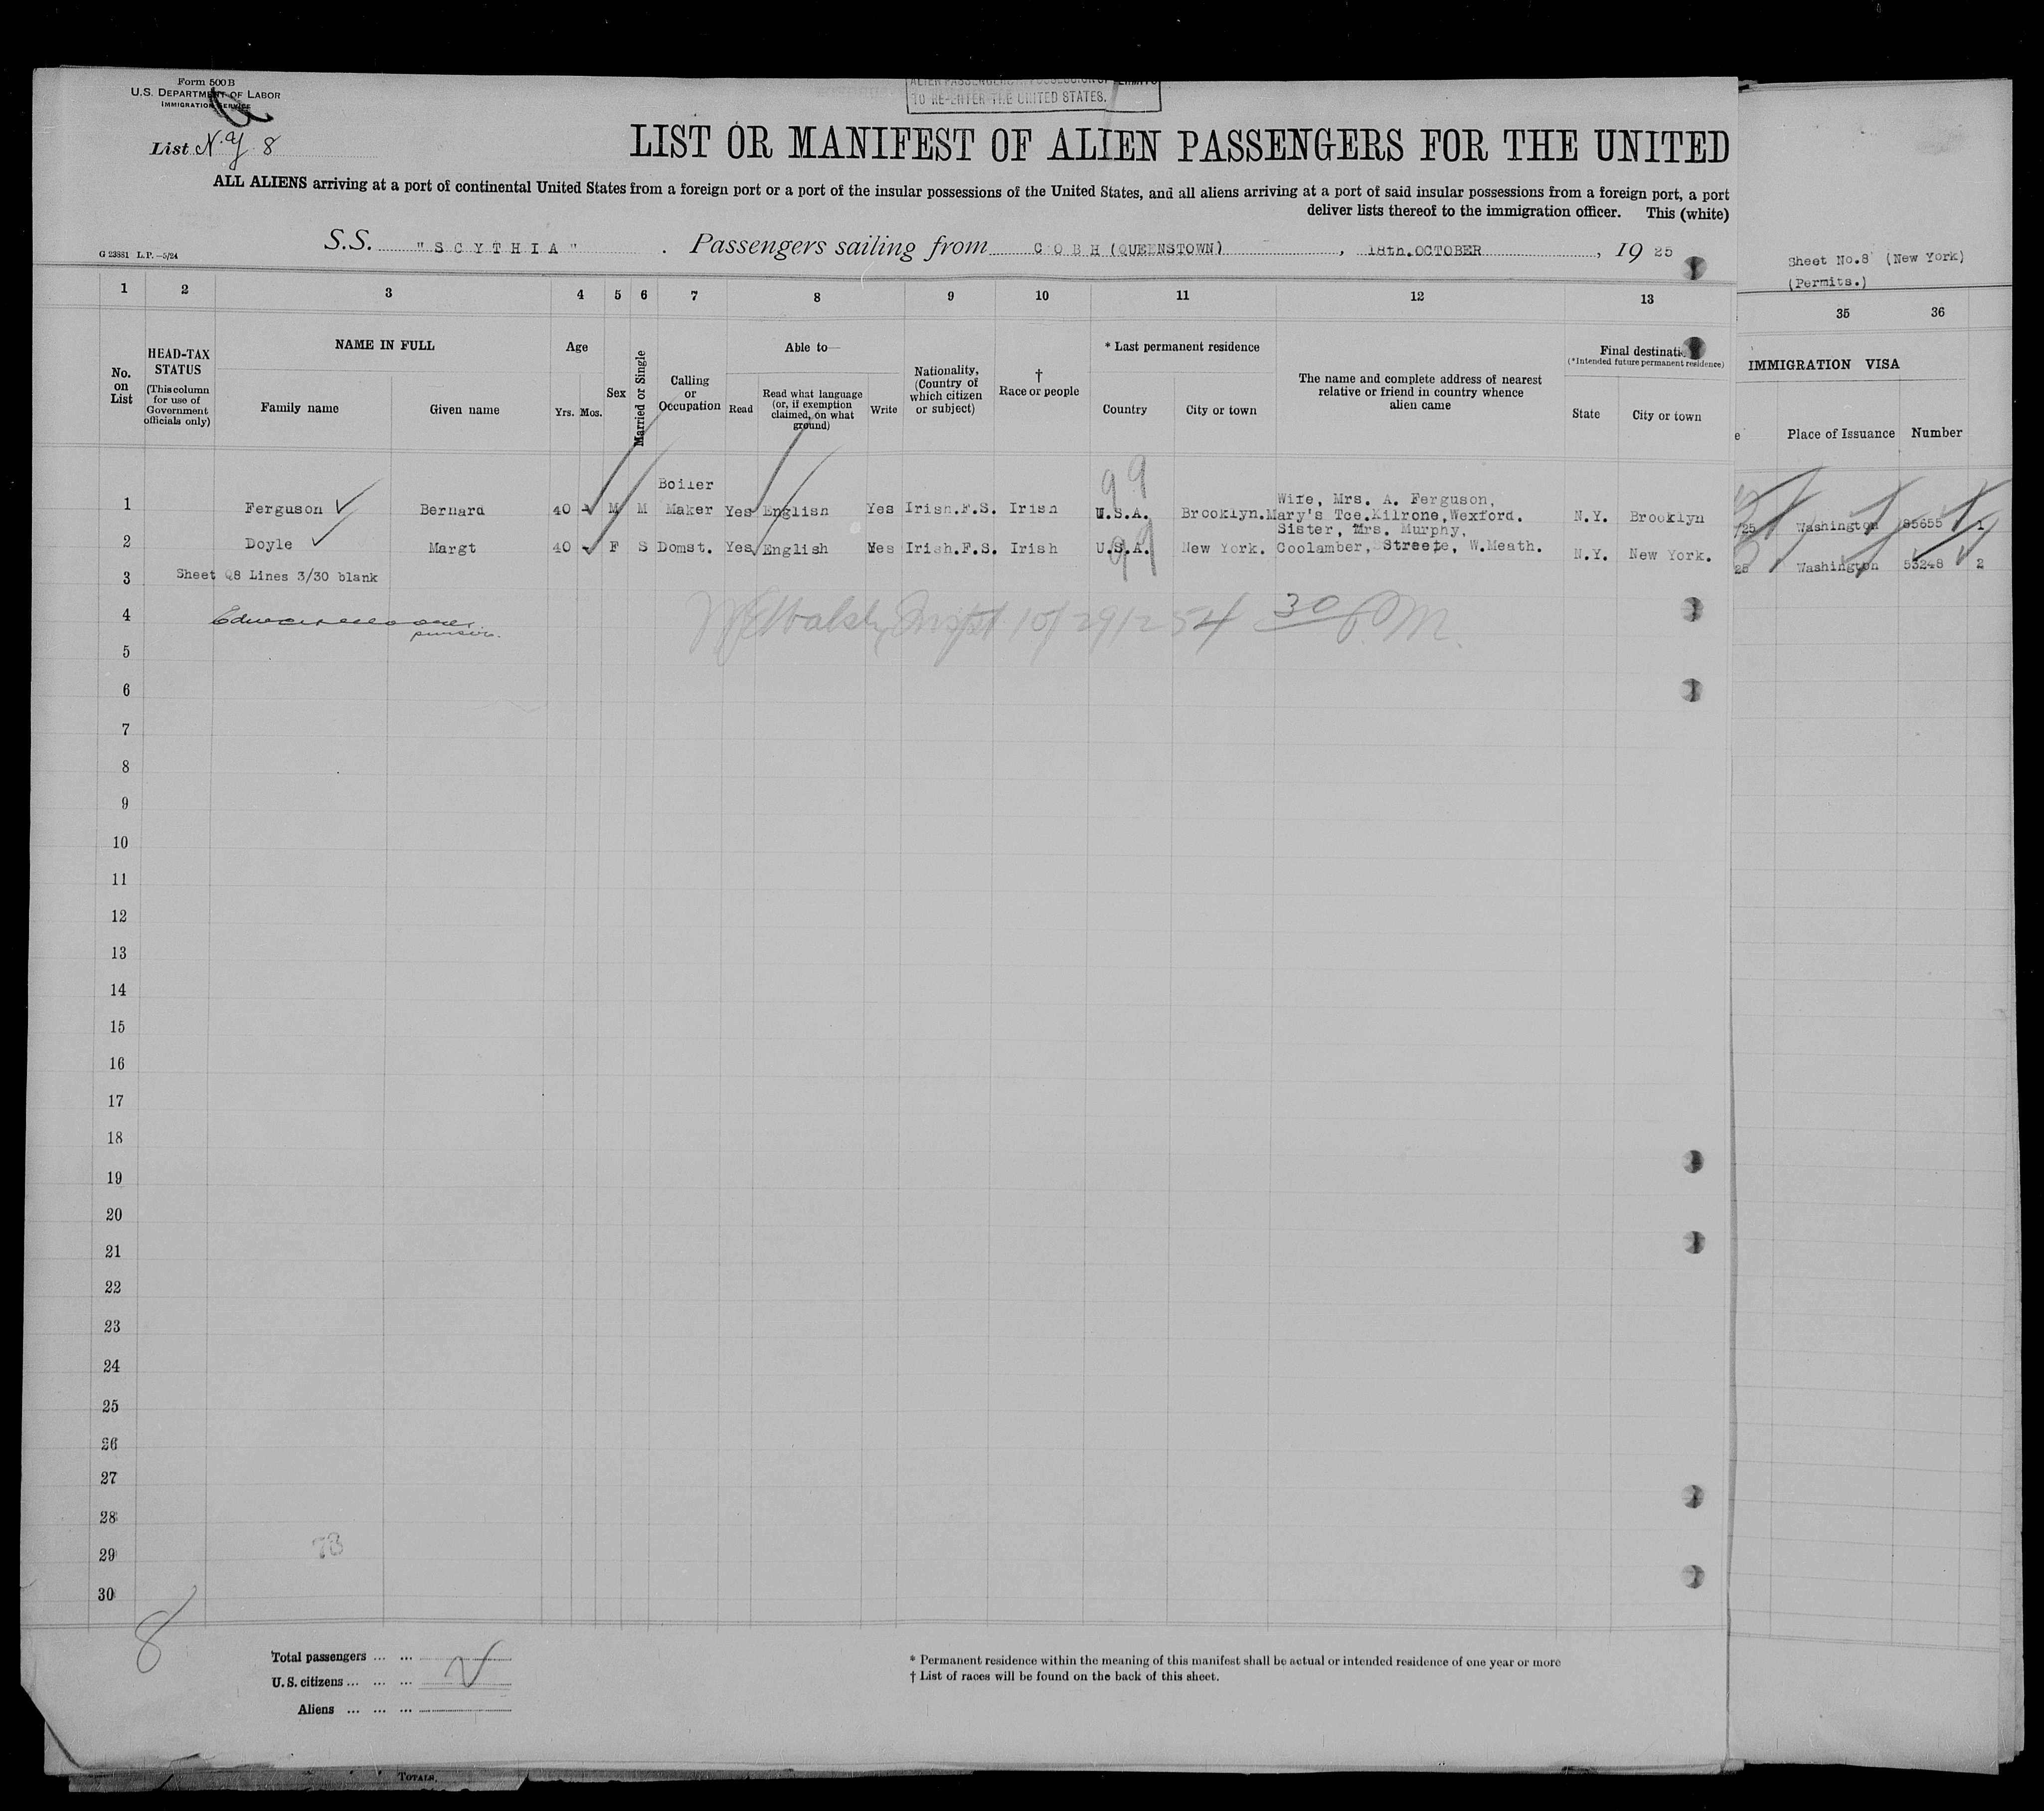 Form 500B
U.S. Department of Labor
Immigration Service
TO RE-ENTER THE UNITED STATES.
List N.Y. 8
LIST OR MANIFEST OF ALIEN PASSENGERS FOR THE UNITED
ALL ALIENS arriving at a port of continental United States from a foreign port or a port of the insular possessions of the United States, and all aliens arriving at a port of said insular possessions from a foreign port, a port
deliver lists thereof to the immigration officer. This (white)
S.S. "SCYTHIA". Passengers sailing from COBH (QUEENSTOWN), 18th.OCTOBER, 1925
G 23881 L.P.—5/24
Sheet No.8 (New York)
(Permits.)
1 2 3 4 5 6 7 8 9 10 11 12 13 35 36
No. on List
HEAD-TAX STATUS
(This column for use of Government officials only)
NAME IN FULL
Family name Given name
Age
Yrs. Mos.
Sex
Married or Single
Calling or Occupation
Able to—
Read
Read what language (or, if exemption claimed, on what ground)
Write
Nationality, (Country of which citizen or subject)
† Race or people
* Last permanent residence
Country City or town
The name and complete address of nearest relative or friend in country whence alien came
Final destination
(*Intended future permanent residence)
State City or town
IMMIGRATION VISA
Place of Issuance Number
1 Ferguson Bernard 40 M M Boiler Maker Yes English Yes Irish.F.S. Irish U.S.A. Brooklyn. Wife, Mrs. A. Ferguson, Mary's Tce.Kilrone,Wexford. N.Y. Brooklyn 25 Washington 95655 1
2 Doyle Margt 40 F S Domst. Yes English Yes Irish.F.S. Irish U.S.A. New York. Sister, Mrs. Murphy, Coolamber, Streete, W.Meath. N.Y. New York. 25 Washington 53248 2
99
99
3 Sheet 8 Lines 3/30 blank
4
W J Walsh Inspt 10/29/25 4 30 P.M.
5
6
7
8
9
10
11
12
13
14
15
16
17
18
19
20
21
22
23
24
25
26
27
28
29
30
78
8
Total passengers ... ...
U.S. citizens ... ... ...
Aliens ... ... ...
* Permanent residence within the meaning of this manifest shall be actual or intended residence of one year or more
† List of races will be found on the back of this sheet.
Totals.